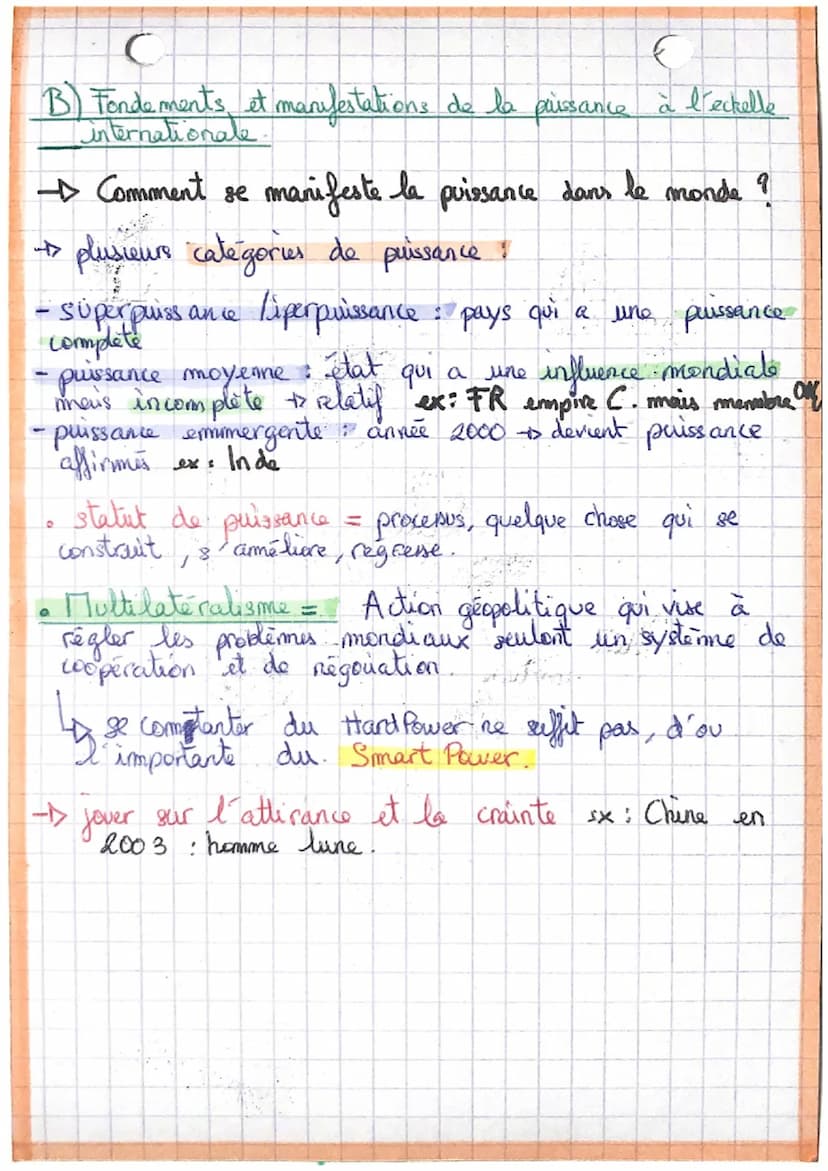 B) Fondements et manifestations de la puissance à l'echelle
internationale.
→ Comment se manifeste la puissance dans le monde ?
→ plusieurs catégories de puissance :
- superpuissance / iperpuissance : pays qui a une puissance
complète
- puissance moyenne : état qui a une influence mondiale
mais incomplète → relatif ex : FR empire C. mais membre
- puissance emmergente : année 2000 → devient puissance
affirmés ex : Inde
• statut de puissance = processus, quelque chose qui se
construit, s'améliore, régresse.
• Multilatéralisme = Action géopolitique qui vise à
régler les problèmes mondiaux un système de
coopération et de négociation.
↳ se du Hard Power ne suffit pas, d'ou
l'importante du Smart Power.
→ jouer sur l'attirance et la crainte : Chine en
2003 : homme lune.